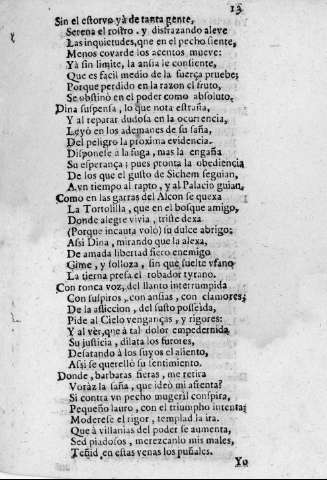 13
Sin el estorvo yà de tanta gente,
Serena el rostro. y disfrazando aleve
Las inquietudes, que en el pecho siente,
Menos covarde los acentos mueve:
Yà sin limite, la ansia le consiente,
Que es facil medio de la fuerça pruebe;
Porque perdido en la razon el fruto,
Se obstinò en el poder como absoluto.
Dina suspensa, lo que nota estraña,
Y al reparar dudosa en la ocurrencia,
Leyò en los ademanes de su saña,
Del peligro la proxima evidencia.
Disponese a la fuga, mas la engaña
Su esperança; pues pronta la obediencia
De los que el gusto de Sichem seguian,
A vn tiempo al rapto, y al Palacio guian.
Como en las garras del Alcon se quexa
La Tortolilla, que en el bosque amigo,
Donde alegre vivia, triste dexa
(Porque incauta volò) su dulce abrigo:
Assi Dina, mirando que la alexa,
De amada libertad fiero enemigo
Gime, y solloza, sin que suelte vfano
La tierna presa el robador tyrano.
Con ronca voz, del llanto interrumpida
Con suspiros, con ansias, con clamores;
De la afliccion, del susto posseida,
Pide al Cielo venganças, y rigores:
Y al vèr, que à tal dolor empedernida
Su justicia, dilata los furores,
Desatando à los suyos el aliento,
Assi se querellò su sentimiento.
Donde, barbaras fieras, me retira
Voràz la saña, que ideò mi afrenta?
Si contra vn pecho mugeril conspira,
Pequeño lauro, con el triumpho intenta;
Moderese el rigor, templad la ira.
Que à villanias del poder se aumenta,
Sed piadosos, merezcanlo mis males,
Teñid en estas venas los puñales.
Yo